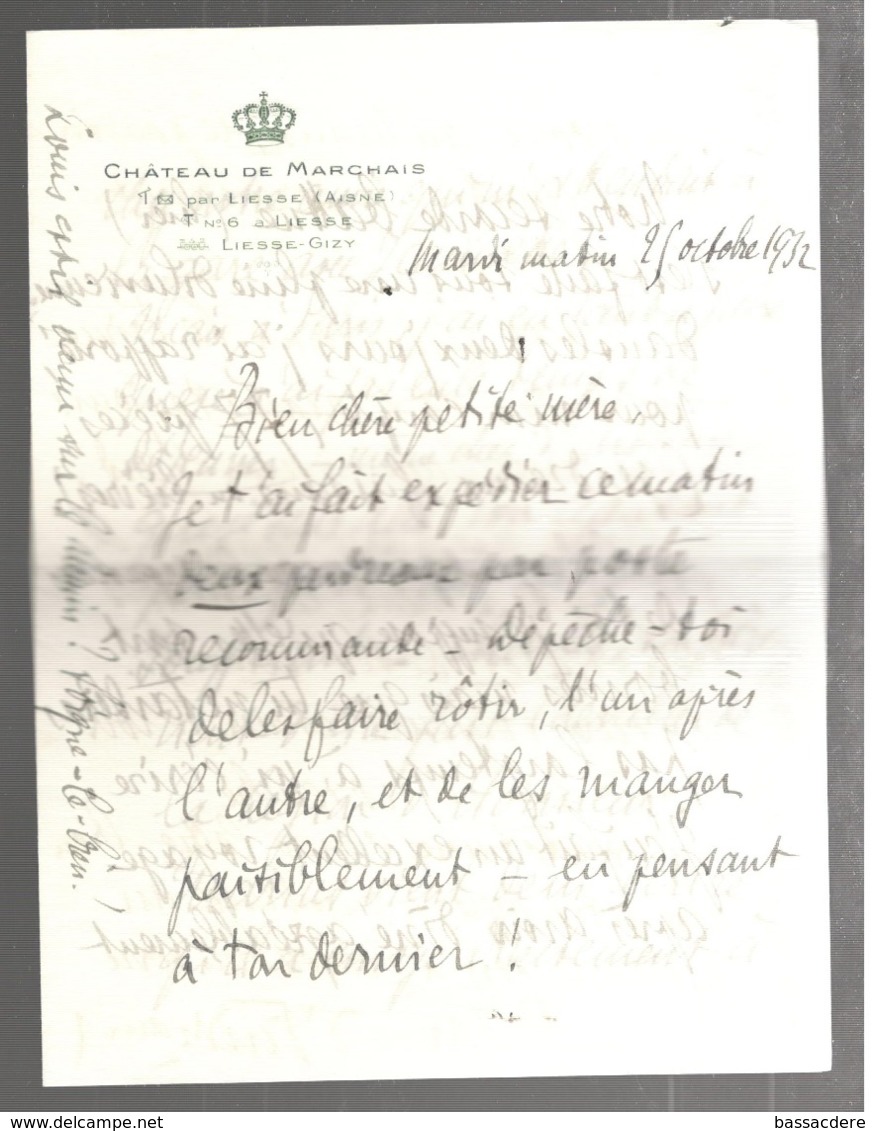 CHÂTEAU DE MARCHAIS
T par LIESSE (AISNE)
T Nº 6 à LIESSE
LIESSE-GIZY
Mardi matin 25 octobre 1932
Bien chère petite mère,
Je t'ai fait expédier ce matin
deux perdreaux par poste
recommandé - Dépêche-toi
de les faire rôtir, l'un après
l'autre, et de les manger
paisiblement - en pensant
à ton dernier !
Louis est-il venu ? Soigne-le-bien.
bassacdere